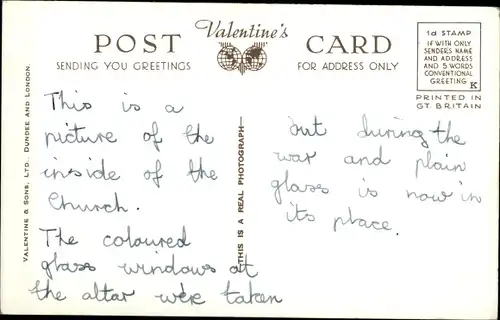 Valentine's
POST CARD
SENDING YOU GREETINGS
FOR ADDRESS ONLY
1d STAMP
IF WITH ONLY
SENDERS NAME
AND ADDRESS
AND 5 WORDS
CONVENTIONAL
GREETING
K
PRINTED IN
GT. BRITAIN
VALENTINE & SONS, LTD. DUNDEE AND LONDON.
This is a
picture of the
inside of the
Church.
The coloured
glass windows at
the altar were taken
THIS IS A REAL PHOTOGRAPH
out during the
war and plain
glass is now in
its place.